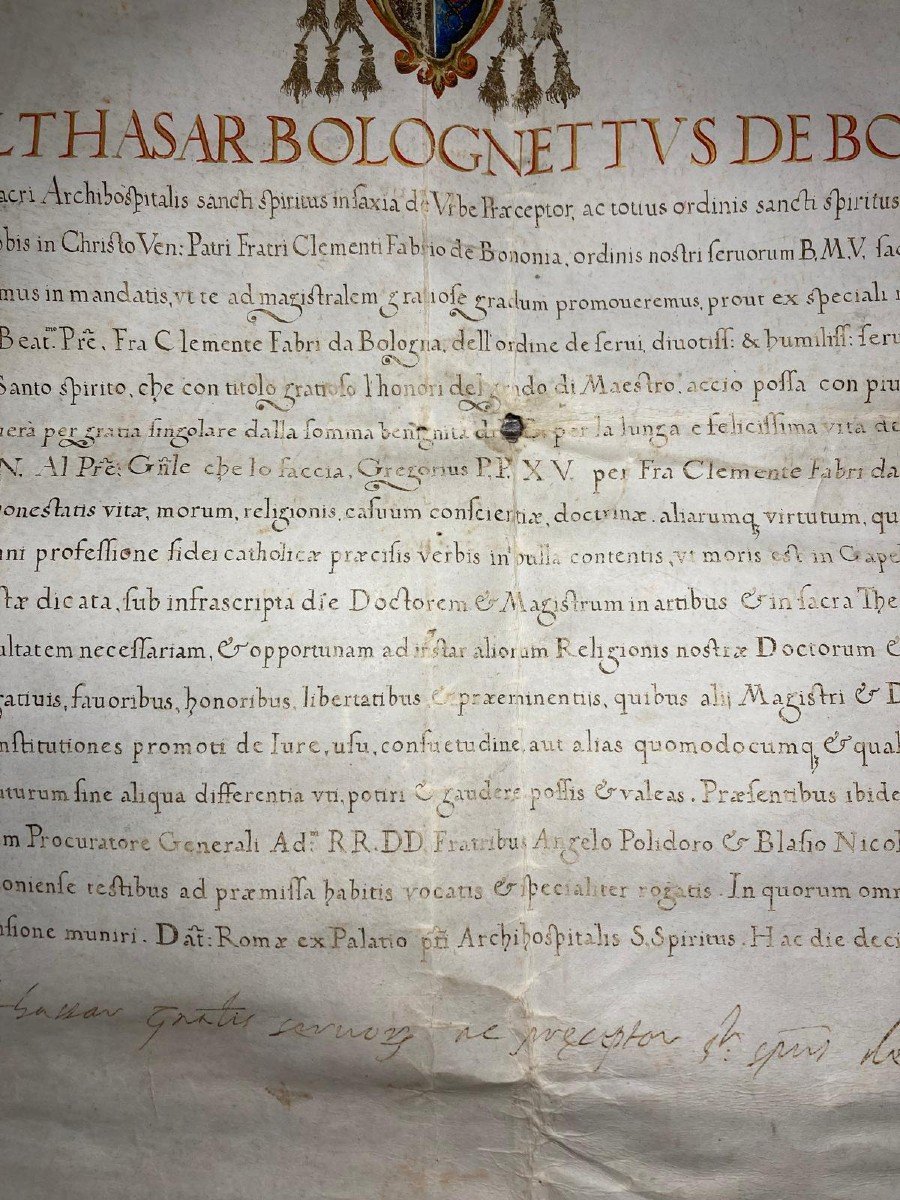 LTHASAR BOLOGNETTVS DE BO
acri Archihospitalis sancti spiritus in saxia de Vrbe Præceptor, ac totius ordinis sancti spiritus
obis in Christo Ven: Patri Fratri Clementi Fabrio de Bononia, ordinis nostri seruorum B.M.V. sac
mus in mandatis, vt te ad magistralem gratiose gradum promoueremus, prout ex speciali
Beat.me Prē. Fra Clemente Fabri da Bologna, dell'ordine de serui, diuotiss: & humiliss: seru
Santo spirito, che con titolo gratioso l'honori del grado di Maestro, accio possa con piu
uerà per gratia singolare dalla somma benignita di per la lunga e felicissima vita de
N. Al Prē: Gn̄le che lo faccia, Gregorius P.P. XV. per Fra Clemente Fabri da
onestatis vitæ, morum, religionis, casuum conscientiæ, doctrinæ, aliarumq; virtutum, qu
ani professione fidei catholicæ præcisis verbis in bulla contentis, vt moris est in Capel
stæ dicata, sub infrascripta die Doctorem & Magistrum in artibus & in sacra The
ultatem necessariam, & opportunam ad instar aliorum Religionis nostræ Doctorum &
gatiuis, fauoribus, honoribus, libertatibus & præeminentijs, quibus alij Magistri & D
nstitutiones promoti de Iure, usu, consuetudine, aut alias quomodocumq; & qual
uturum sine aliqua differentia vti, potiri & gaudere possis & valeas. Præsentibus ibide
m Procuratore Generali Ad.m RR.DD. Fratribus Angelo Polidoro & Blasio Nicol
oniense testibus ad præmissa habitis vocatis & specialiter rogatis. In quorum omn
nsione muniri. Dat̄: Romæ ex Palatio ptī Archihospitalis S. Spiritus. Hac die deci
thassar seruorū ac præceptor sti spūs de